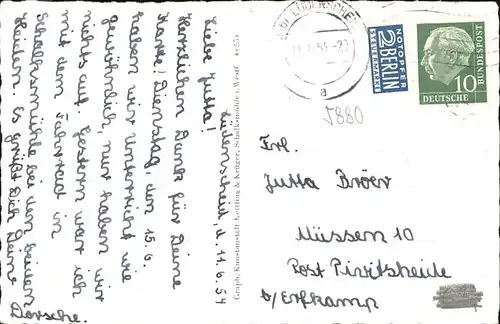 Lüdenscheid, d. 11.6.54
Liebe Jutta!
Herzlichen Dank für Deine
Karte! Dienstag, den 15.6.
haben wir Unterricht wie
gewöhnlich, nur haben wir
nichts auf. Gestern war ich
mit dem Fahrrad in
Schalksmühle bei den beiden
Heiden. Es grüßt Dich Deine
Dorsche.
Graph. Kunstanstalt Kettling & Krüger, Schalksmühle i. Westf.
LÜDENSCHEID
a
NOTOPFER
2 BERLIN
STEUERMARKE
10
DEUTSCHE
BUNDESPOST
5880
Frl.
Jutta Bröer
Müssen 10
Post Pivitsheide
b/